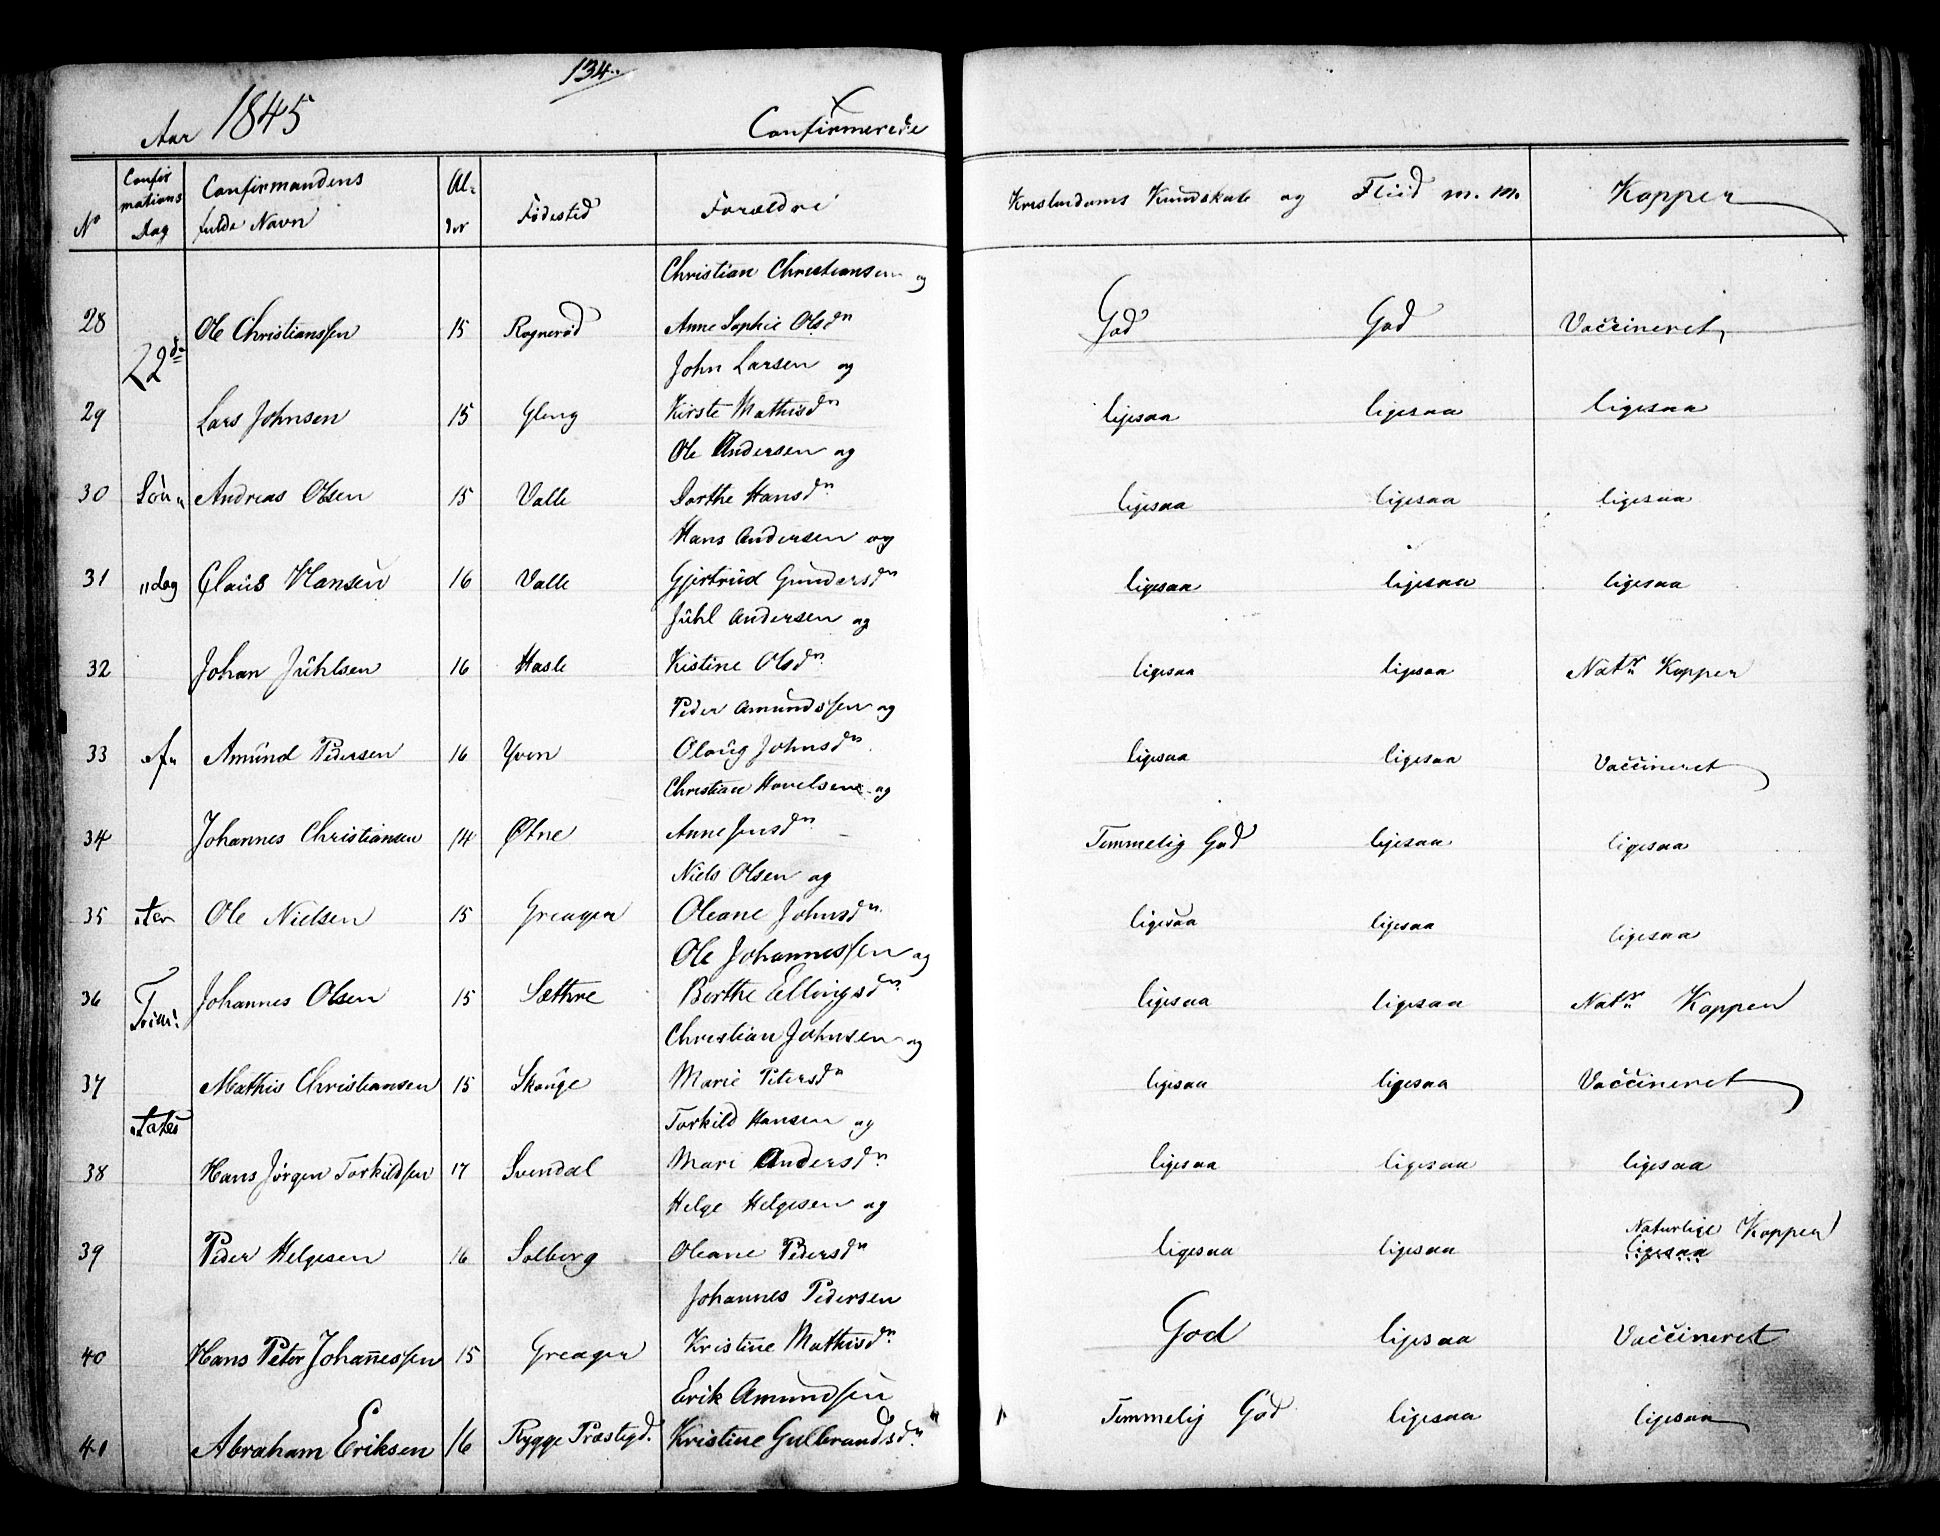 134.
Aar 1845 Confirmerede
No Confirmations Dag Confirmandens fulde Navn Alder Fødested Forældre Kristendoms Kundskab og Fliid m. m. Kopper
Christian Christiansen og
28 Ole Christianssen 15 Rognerød Anne Sophie Olsdn God God Vaccineret
22de
John Larsen og
29 Lars Johnsen 15 Gleng Kirste Mathisdn ligesaa ligesaa ligesaa
Ole Andersen og
30 Søn„ Andreas Olsen 15 Valle Dorthe Hansdn ligesaa ligesaa ligesaa
Hans Andersen og
31 „dag Claus Hansen 16 Valle Gjertrud Gundersdn ligesaa ligesaa ligesaa
Juhl Andersen og
32 Johan Juhlsen 16 Hasle Kistine Olsdn ligesaa ligesaa Natu Kopper
Peder Amundssen og
33 Af„ Amund Pedersen 16 Yven Olaug Johnsdn ligesaa ligesaa Vaccineret
Christian Hovelsen og
34 Johannes Christiansen 14 Østne Anne Jensdn Temmelig God ligesaa ligesaa
Niels Olsen og
35 ter Ole Nielsen 15 Greager Oleane Johnsdn ligesaa ligesaa ligesaa
Ole Johannessen og
36 Johannes Olsen 15 Sæthre Berthe Ellingsdn ligesaa ligesaa Natu Kopper
Trini:
Christian Johnsen og
37 Mathis Christiansen 15 Skouge Marie Petersdn ligesaa ligesaa Vaccineret
tates
Torkild Hansen og
38 Hans Jørgen Torkildsen 17 Svendal Mari Andersdn ligesaa ligesaa ligesaa
Helge Helgesen og
Naturlige Kopper
39 Peder Helgesen 16 Solberg Oleane Pedersdn ligesaa ligesaa ligesaa
Johannes Pedersen
40 Hans Peter Johannessen 15 Greager Kristine Mathisdn God ligesaa Vaccineret
Erik Amundsen
41 Abraham Eriksen 16 Rygge Præstegd. Kristine Gulbrandsdn Temmelig God ligesaa ligesaa